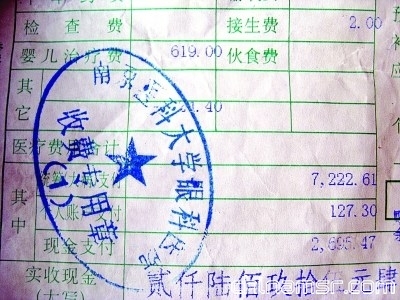 检 查 费 接生费 2.00
婴儿治疗费 619.00 伙食费
其
它 .40
医疗费用合计
其 7,222.61
中 个人账 支付 127.30
现金支付 2,695.47
实收现金 贰仟陆佰玖拾伍元肆
(大写)
南京医科大学眼科医
收费专用章
(1)